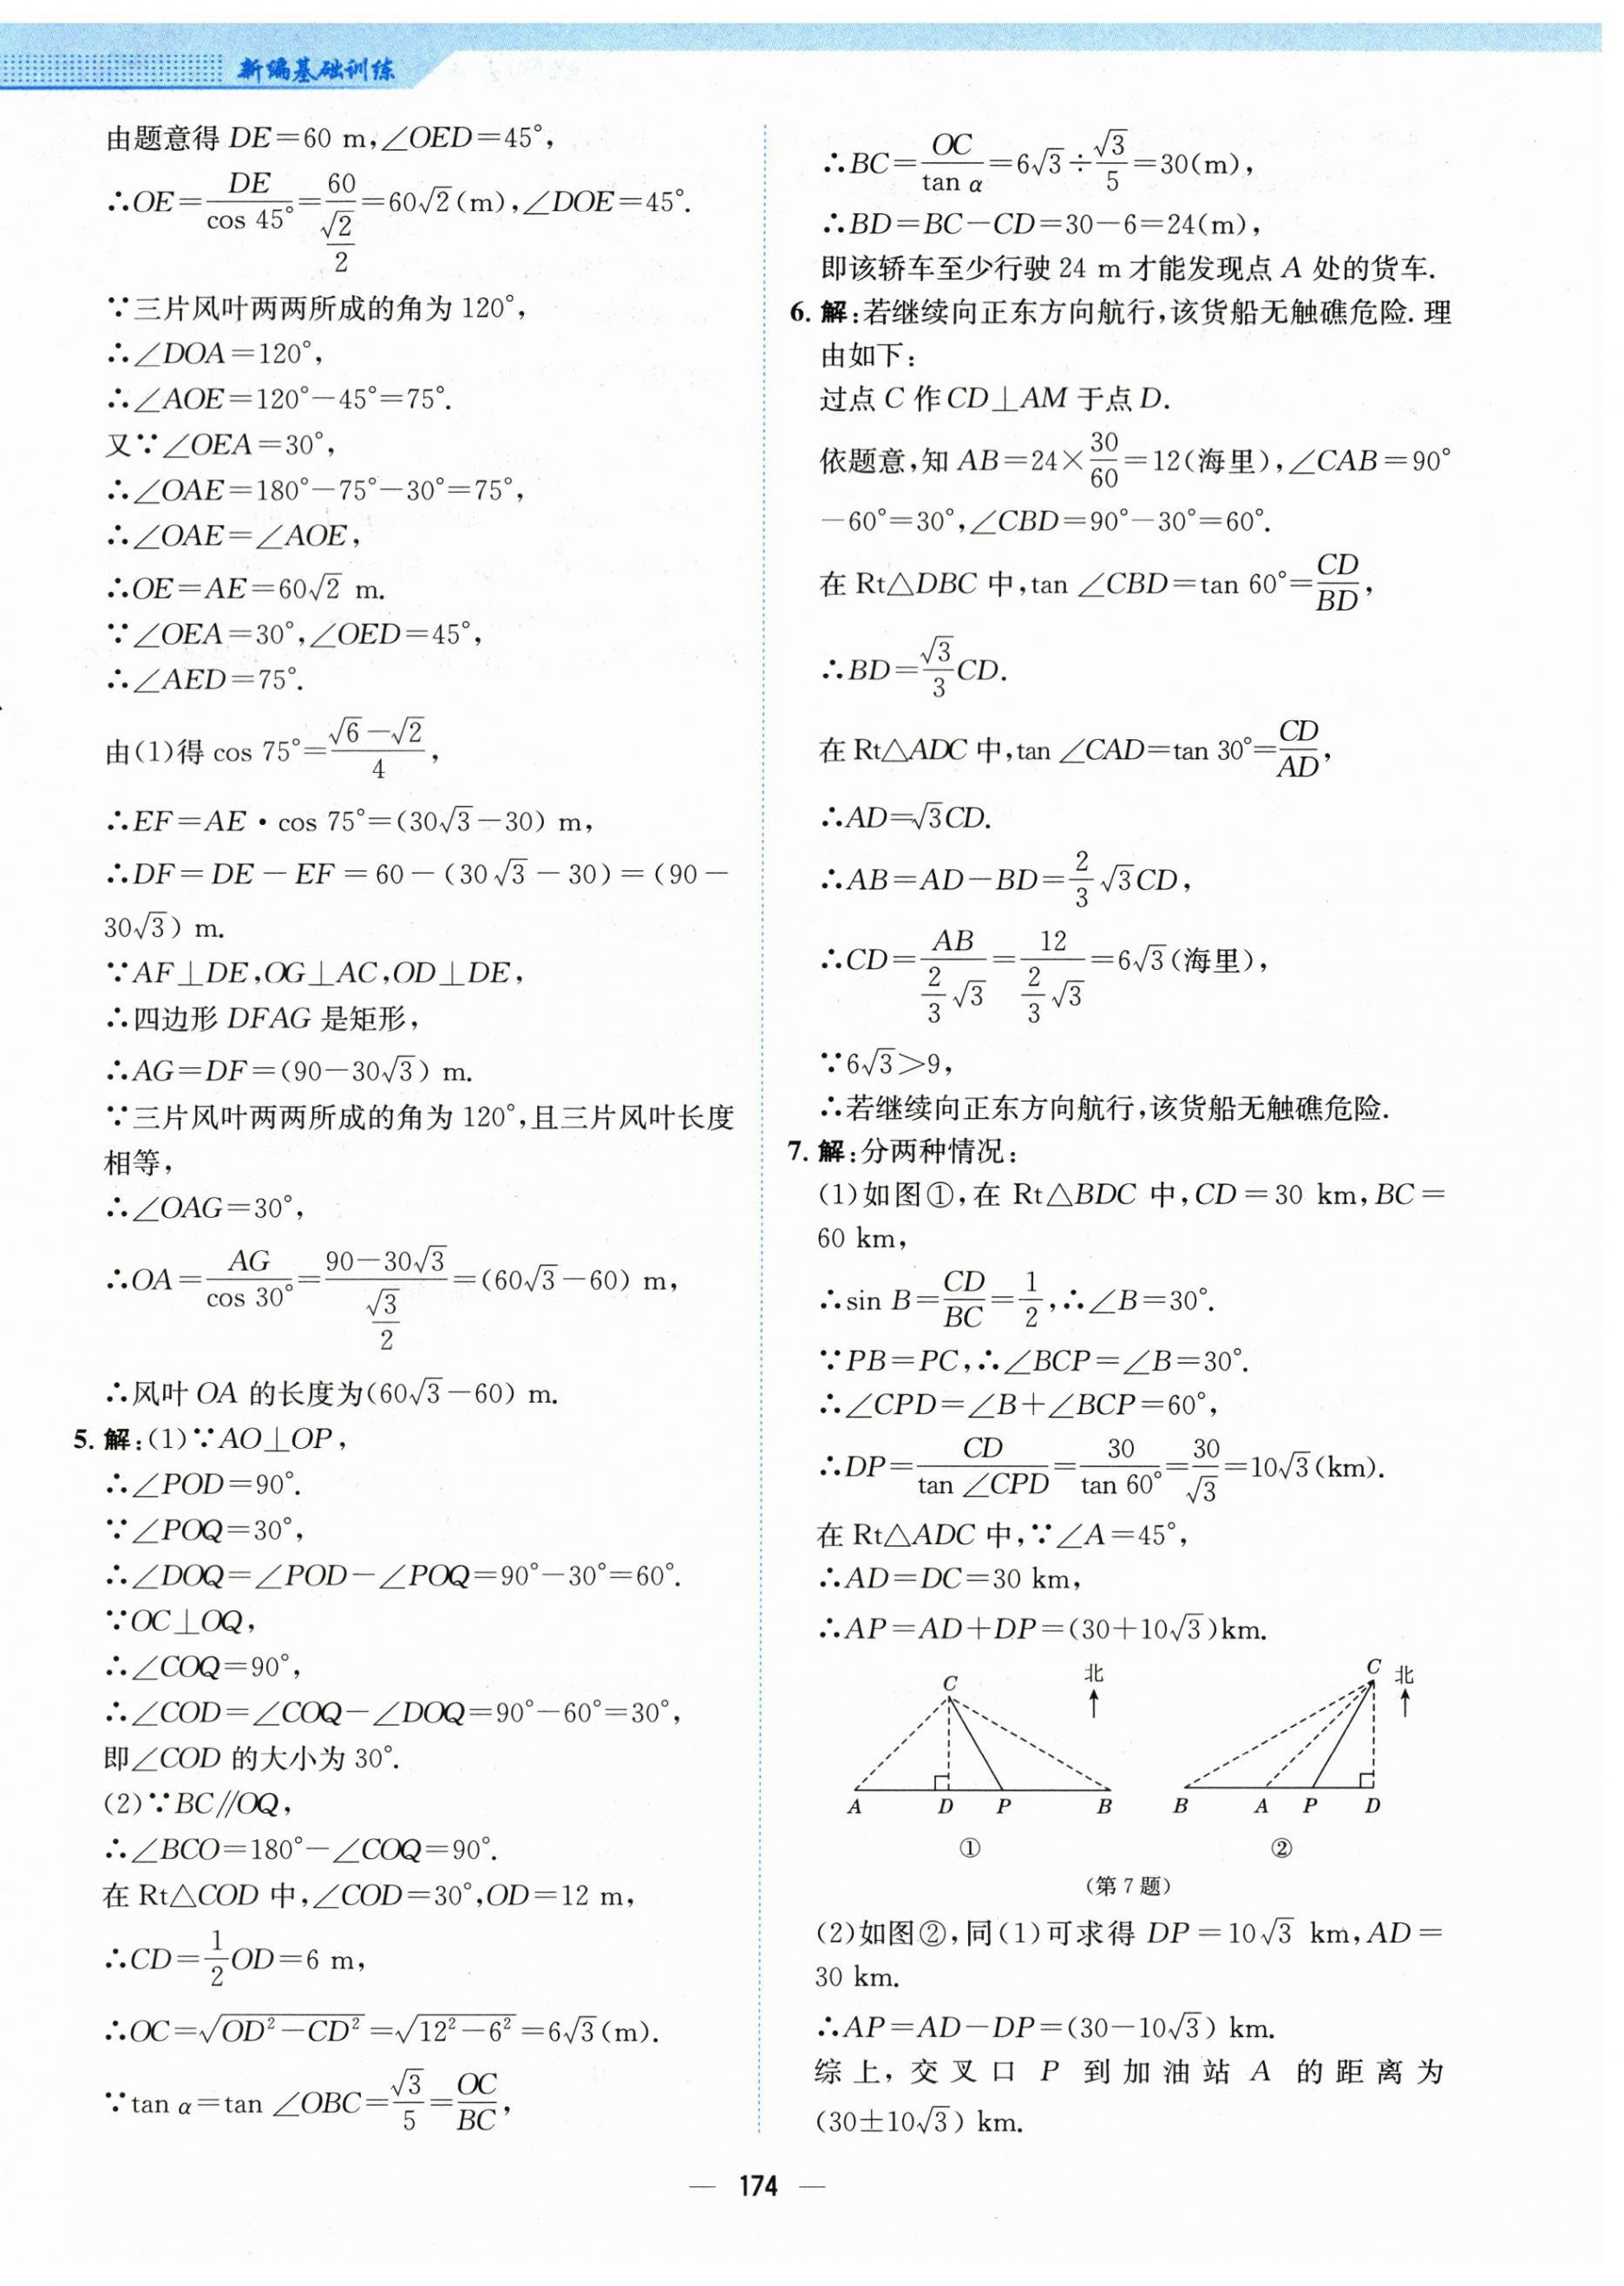 新编基础训练
由题意得 DE=60 m,∠OED=45°,
∴OE=DE/cos 45°=60/(√2/2)=60√2(m),∠DOE=45°.
∵三片风叶两两所成的角为 120°,
∴∠DOA=120°,
∴∠AOE=120°-45°=75°.
又∵∠OEA=30°,
∴∠OAE=180°-75°-30°=75°,
∴∠OAE=∠AOE,
∴OE=AE=60√2 m.
∵∠OEA=30°,∠OED=45°,
∴∠AED=75°.
由(1)得 cos 75°=(√6-√2)/4,
∴EF=AE·cos 75°=(30√3-30) m,
∴DF=DE-EF=60-(30√3-30)=(90-
30√3) m.
∵AF⊥DE,OG⊥AC,OD⊥DE,
∴四边形 DFAG 是矩形,
∴AG=DF=(90-30√3) m.
∵三片风叶两两所成的角为 120°,且三片风叶长度
相等,
∴∠OAG=30°,
∴OA=AG/cos 30°=(90-30√3)/(√3/2)=(60√3-60) m,
∴风叶 OA 的长度为(60√3-60) m.
5. 解:(1)∵AO⊥OP,
∴∠POD=90°.
∵∠POQ=30°,
∴∠DOQ=∠POD-∠POQ=90°-30°=60°.
∵OC⊥OQ,
∴∠COQ=90°,
∴∠COD=∠COQ-∠DOQ=90°-60°=30°,
即∠COD 的大小为 30°.
(2)∵BC∥OQ,
∴∠BCO=180°-∠COQ=90°.
在 Rt△COD 中,∠COD=30°,OD=12 m,
∴CD=1/2 OD=6 m,
∴OC=√(OD²-CD²)=√(12²-6²)=6√3(m).
∵tan α=tan ∠OBC=√3/5=OC/BC,
∴BC=OC/tan α=6√3÷√3/5=30(m),
∴BD=BC-CD=30-6=24(m),
即该轿车至少行驶 24 m 才能发现点 A 处的货车.
6. 解:若继续向正东方向航行,该货船无触礁危险. 理
由如下:
过点 C 作 CD⊥AM 于点 D.
依题意,知 AB=24×30/60=12(海里),∠CAB=90°
-60°=30°,∠CBD=90°-30°=60°.
在 Rt△DBC 中,tan ∠CBD=tan 60°=CD/BD,
∴BD=√3/3 CD.
在 Rt△ADC 中,tan ∠CAD=tan 30°=CD/AD,
∴AD=√3CD.
∴AB=AD-BD=2/3 √3CD,
∴CD=AB/(2/3 √3)=12/(2/3 √3)=6√3(海里),
∵6√3>9,
∴若继续向正东方向航行,该货船无触礁危险.
7. 解:分两种情况:
(1)如图①,在 Rt△BDC 中,CD=30 km,BC=
60 km,
∴sin B=CD/BC=1/2,∴∠B=30°.
∵PB=PC,∴∠BCP=∠B=30°.
∴∠CPD=∠B+∠BCP=60°,
∴DP=CD/tan ∠CPD=30/tan 60°=30/√3=10√3(km).
在 Rt△ADC 中,∵∠A=45°,
∴AD=DC=30 km,
∴AP=AD+DP=(30+10√3)km.
C 北 C 北
A D P B B A P D
① ②
(第 7 题)
(2)如图②,同(1)可求得 DP=10√3 km,AD=
30 km.
∴AP=AD-DP=(30-10√3) km.
综上,交叉口 P 到加油站 A 的距离为
(30±10√3) km.
— 174 —